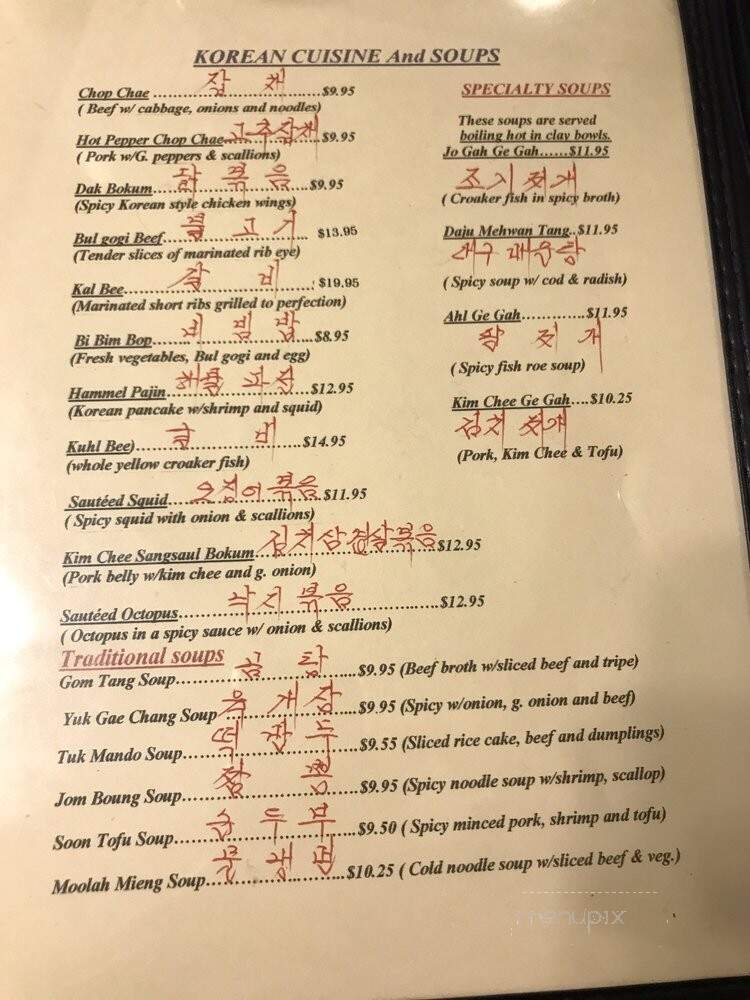 KOREAN CUISINE And SOUPS
잡 채
Chop Chae ...........................$9.95
( Beef w/ cabbage, onions and noodles)
고추잡채
Hot Pepper Chop Chae................$9.95
( Pork w/G. peppers & scallions)
닭 볶 음
Dak Bokum...........................$9.95
(Spicy Korean style chicken wings)
불 고 기
Bul gogi Beef........................ $13.95
(Tender slices of marinated rib eye)
갈 비
Kal Bee.............................. $19.95
(Marinated short ribs grilled to perfection)
비 빔 밥
Bi Bim Bop...........................$8.95
(Fresh vegetables, Bul gogi and egg)
해물 파전
Hammel Pajin........................$12.95
(Korean pancake w/shrimp and squid)
굴 비
Kuhl Bee)............................$14.95
(whole yellow croaker fish)
오징어볶음
Sautéed Squid.......................$11.95
( Spicy squid with onion & scallions)
김치삼겹살볶음
Kim Chee Sangsaul Bokum............................$12.95
(Pork belly w/kim chee and g. onion)
낙지 볶음
Sautéed Octopus............................................$12.95
( Octopus in a spicy sauce w/ onion & scallions)
Traditional soups
곰 탕
Gom Tang Soup..............................$9.95 (Beef broth w/sliced beef and tripe)
육 개 장
Yuk Gae Chang Soup .......................$9.95 (Spicy w/onion, g. onion and beef)
떡 만 두
Tuk Mando Soup.............................$9.55 (Sliced rice cake, beef and dumplings)
짬 뽕
Jom Boung Soup.............................$9.95 (Spicy noodle soup w/shrimp, scallop)
순 두 부
Soon Tofu Soup..............................$9.50 ( Spicy minced pork, shrimp and tofu)
물 냉 면
Moolah Mieng Soup.......................$10.25 ( Cold noodle soup w/sliced beef & veg.)
SPECIALTY SOUPS
These soups are served
boiling hot in clay bowls.
Jo Gah Ge Gah......$11.95
조기 찌개
( Croaker fish in spicy broth)
Daju Mehwan Tang..$11.95
대구 매운탕
( Spicy soup w/ cod & radish)
Ahl Ge Gah.............$11.95
알 찌 개
( Spicy fish roe soup)
Kim Chee Ge Gah....$10.25
김치 찌개
(Pork, Kim Chee & Tofu)
menupix